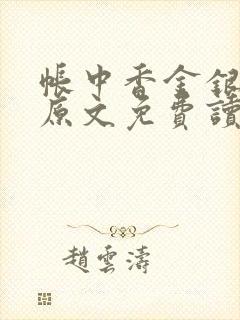 帳中香金銀
原文免費讀
趙雲濤